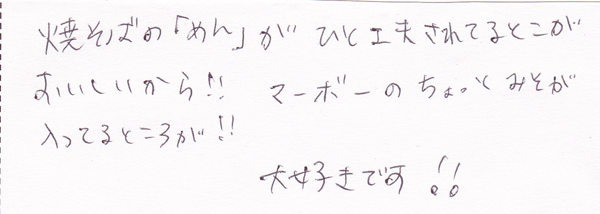 焼そばの「めん」が ひと工夫されてるとこが
おいしいから!! マーボーのちょっとみそが
入ってるところが!!
大好きです!!